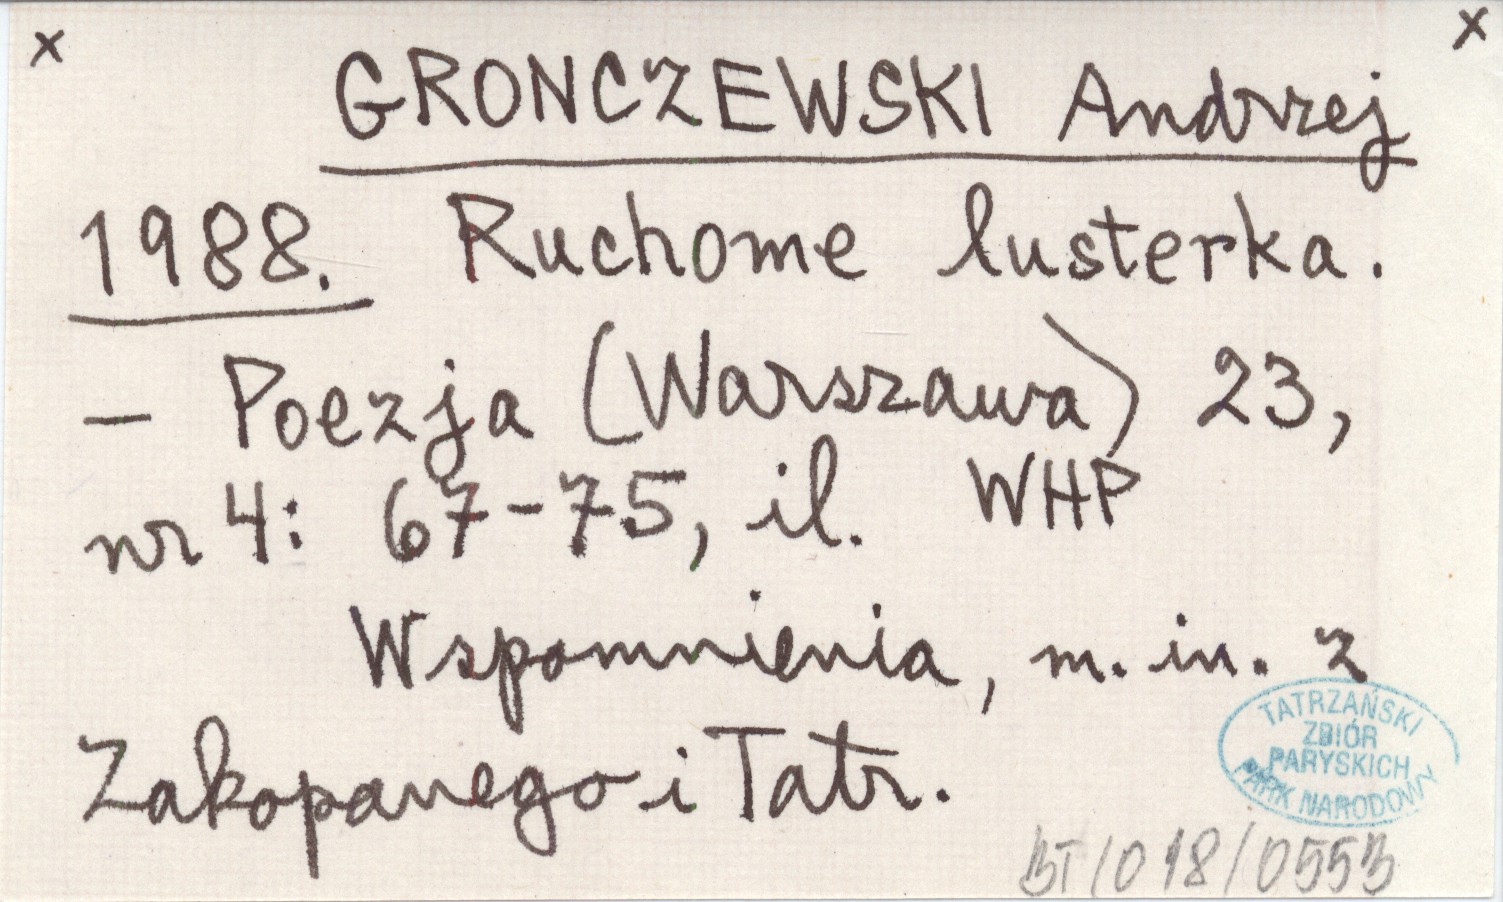 x x
GRONCZEWSKI Andrzej
1988. Ruchome lusterka.
— Poezja (Warszawa) 23,
nr 4: 67-75, il. WHP
Wspomnienia, m. in. z
Zakopanego i Tatr.
TATRZAŃSKI
ZBIÓR
PARYSKICH
PARK NARODOWY
BT/018/0553